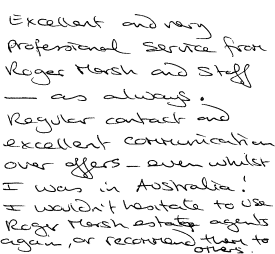 Excellent and very
professional service from
Roger Marsh and Staff
— as always.
Regular contact and
excellent communication
over offers – even whilst
I was in Australia!
I wouldn't hesitate to use
Roger Marsh estate agents
again, or recommend them to
others.